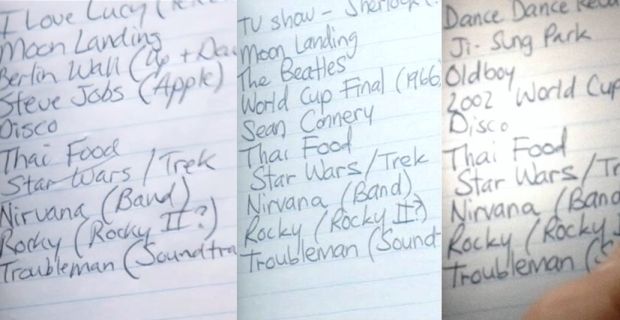 I Love Lucy (
Moon Landing
Berlin Wall (Up +
Steve Jobs (Apple)
Disco
Thai Food
Star Wars / Trek
Nirvana (Band)
Rocky (Rocky II?)
Troubleman (Soundtra
TV show - Sherlock
Moon Landing
The Beatles
World Cup Final (1966
Sean Connery
Thai Food
Star Wars / Trek
Nirvana (Band)
Rocky (Rocky II?)
Troubleman (Sound
Dance Dance
Ji-Sung Park
Oldboy
2002 World Cup
Disco
Thai Food
Star Wars / Tr
Nirvana (Band
Rocky (Rocky
Troubleman (S